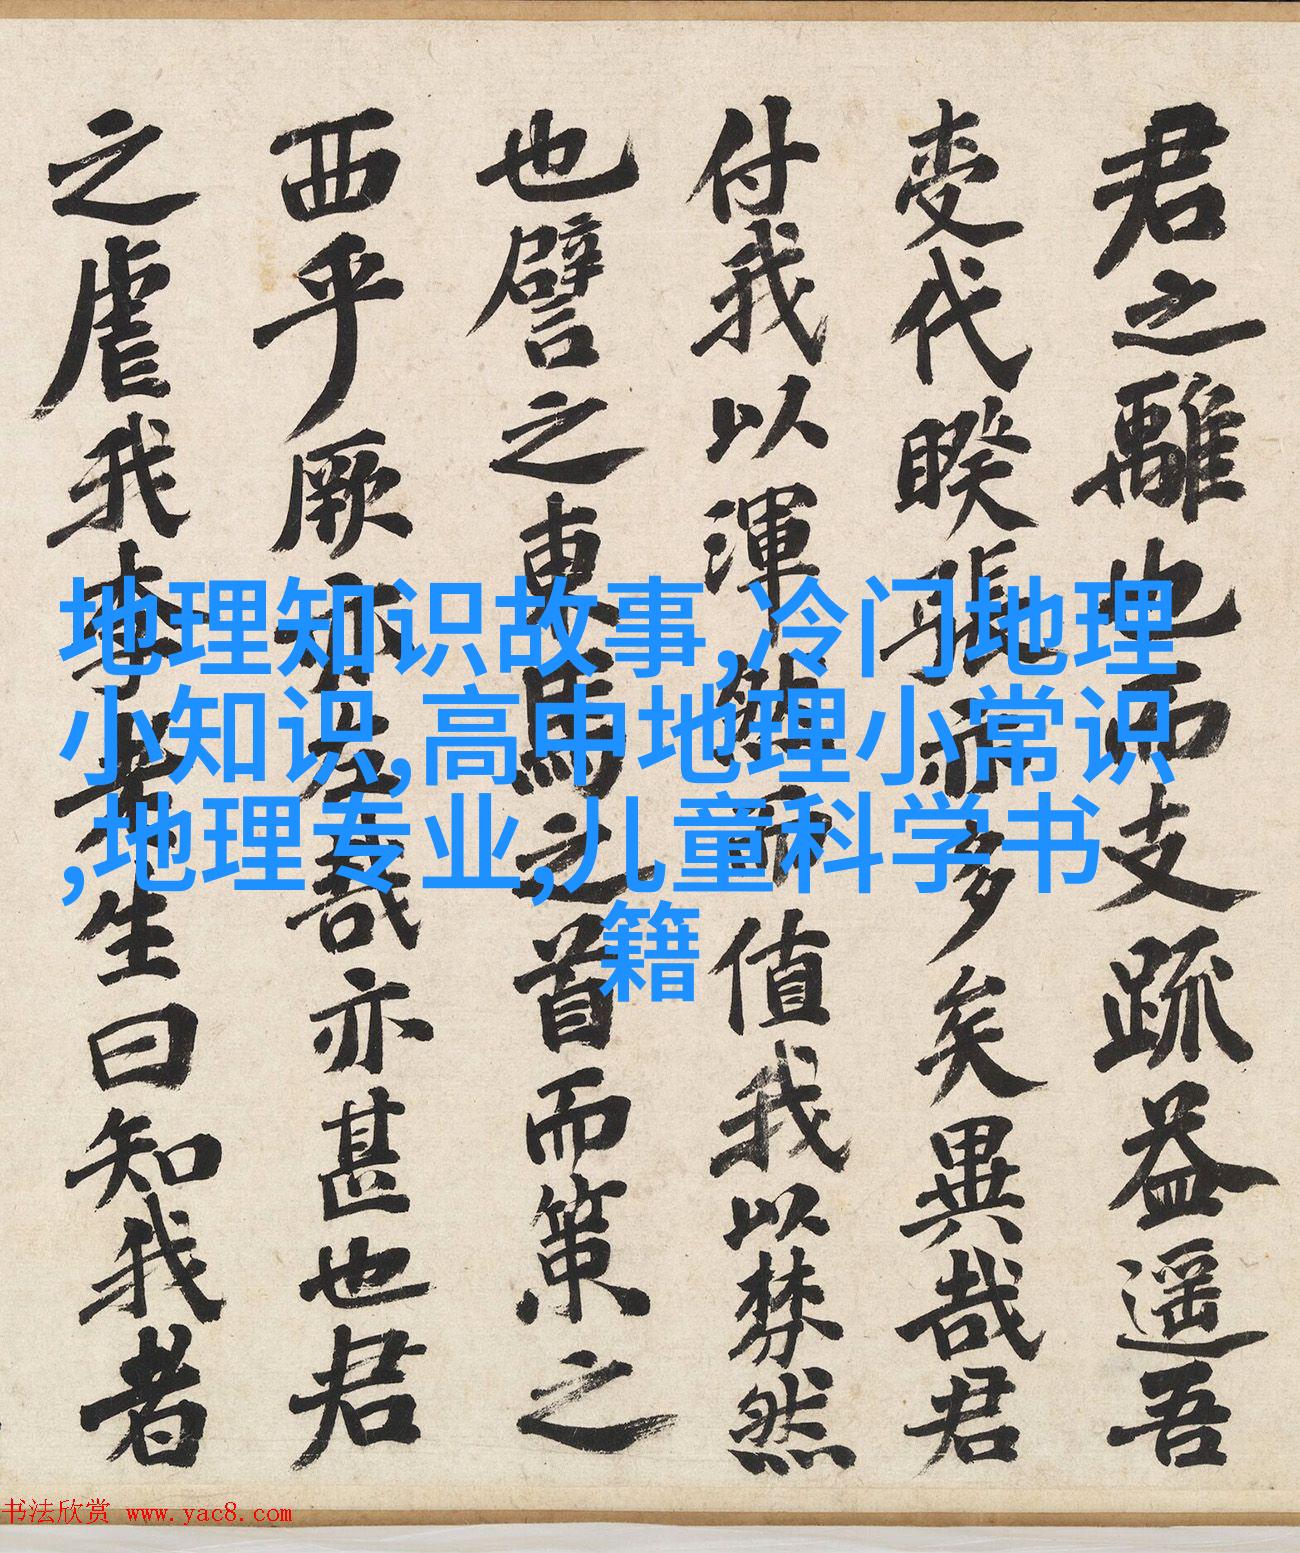 君之離也而支疏益遥吾
变代暌張
多矣異哉君
付我以渾
師值我以棼然
也譬之東馬之首而策之
西乎厥
哉亦甚也君
之虐我
生曰知我者
地理知识故事,冷门地理
小知识,高中地理小常识
,地理专业,儿童科学书
籍
书法欣赏 www.yac8.com